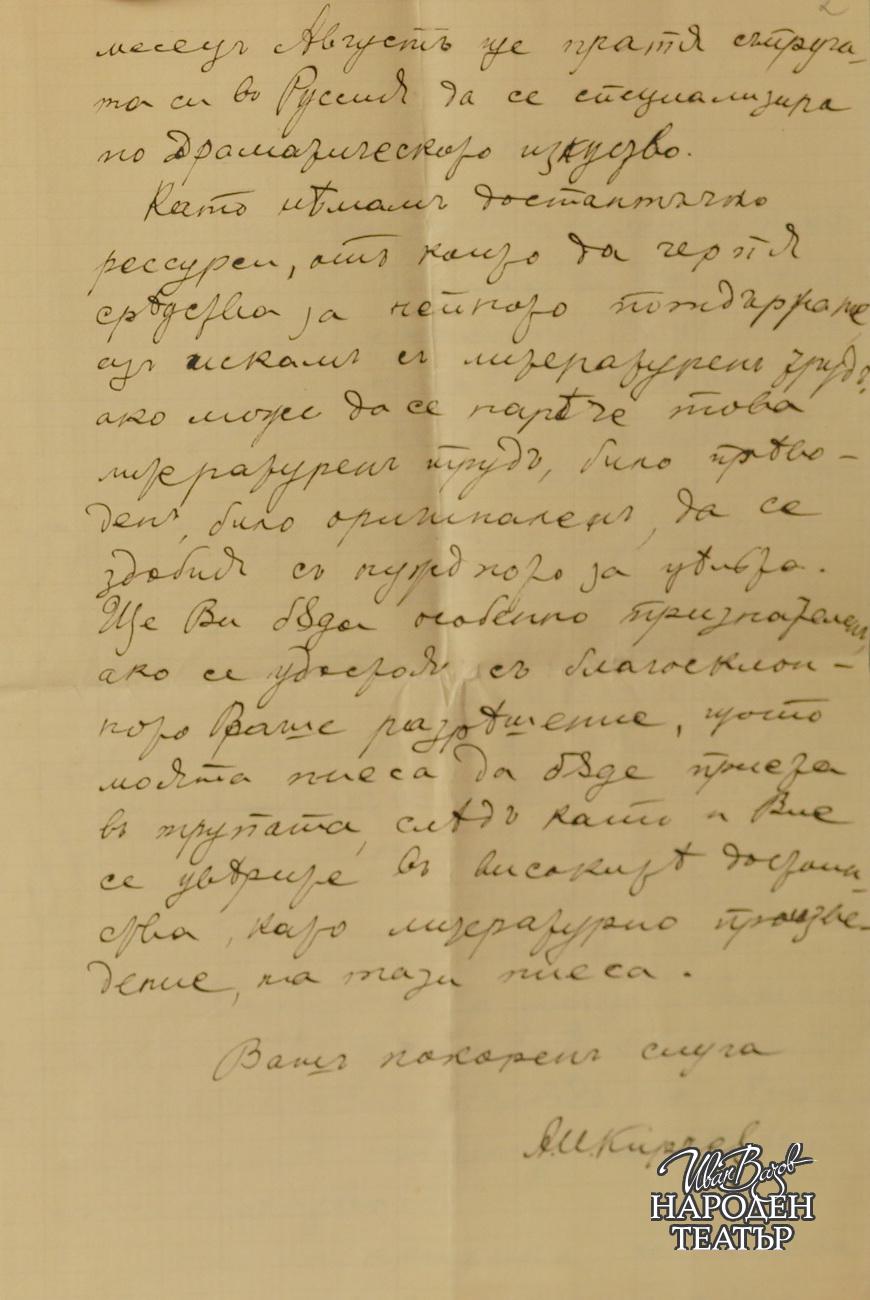 2
месецъ Августъ ще пратя съпруга-
та си въ Руссия да се специализира
по драматическото изкуство.
Като нѣмамъ достатъчно
рессурси, отъ които да черпя
срѣдства за нейното поддържане
азъ искамъ съ литературенъ трудъ,
ако може да се нарѣче това
литературенъ трудъ, било прѣво-
денъ, било оригиналенъ, да се
здобия съ нуждното за цѣльта.
Ще Ви бѫда особенно признателенъ,
ако се удостоя съ благосклон-
ното Ваше разрѣшение, щото
моята пиеса да бѫде приета
въ трупата, слѣдъ като и Вие
се увѣрите въ високитѣ достоин-
ства, като литературно произве-
дение, на тази пиеса.
Вашъ покоренъ слуга
Иван Вазов
НАРОДЕН
ТЕАТЪР